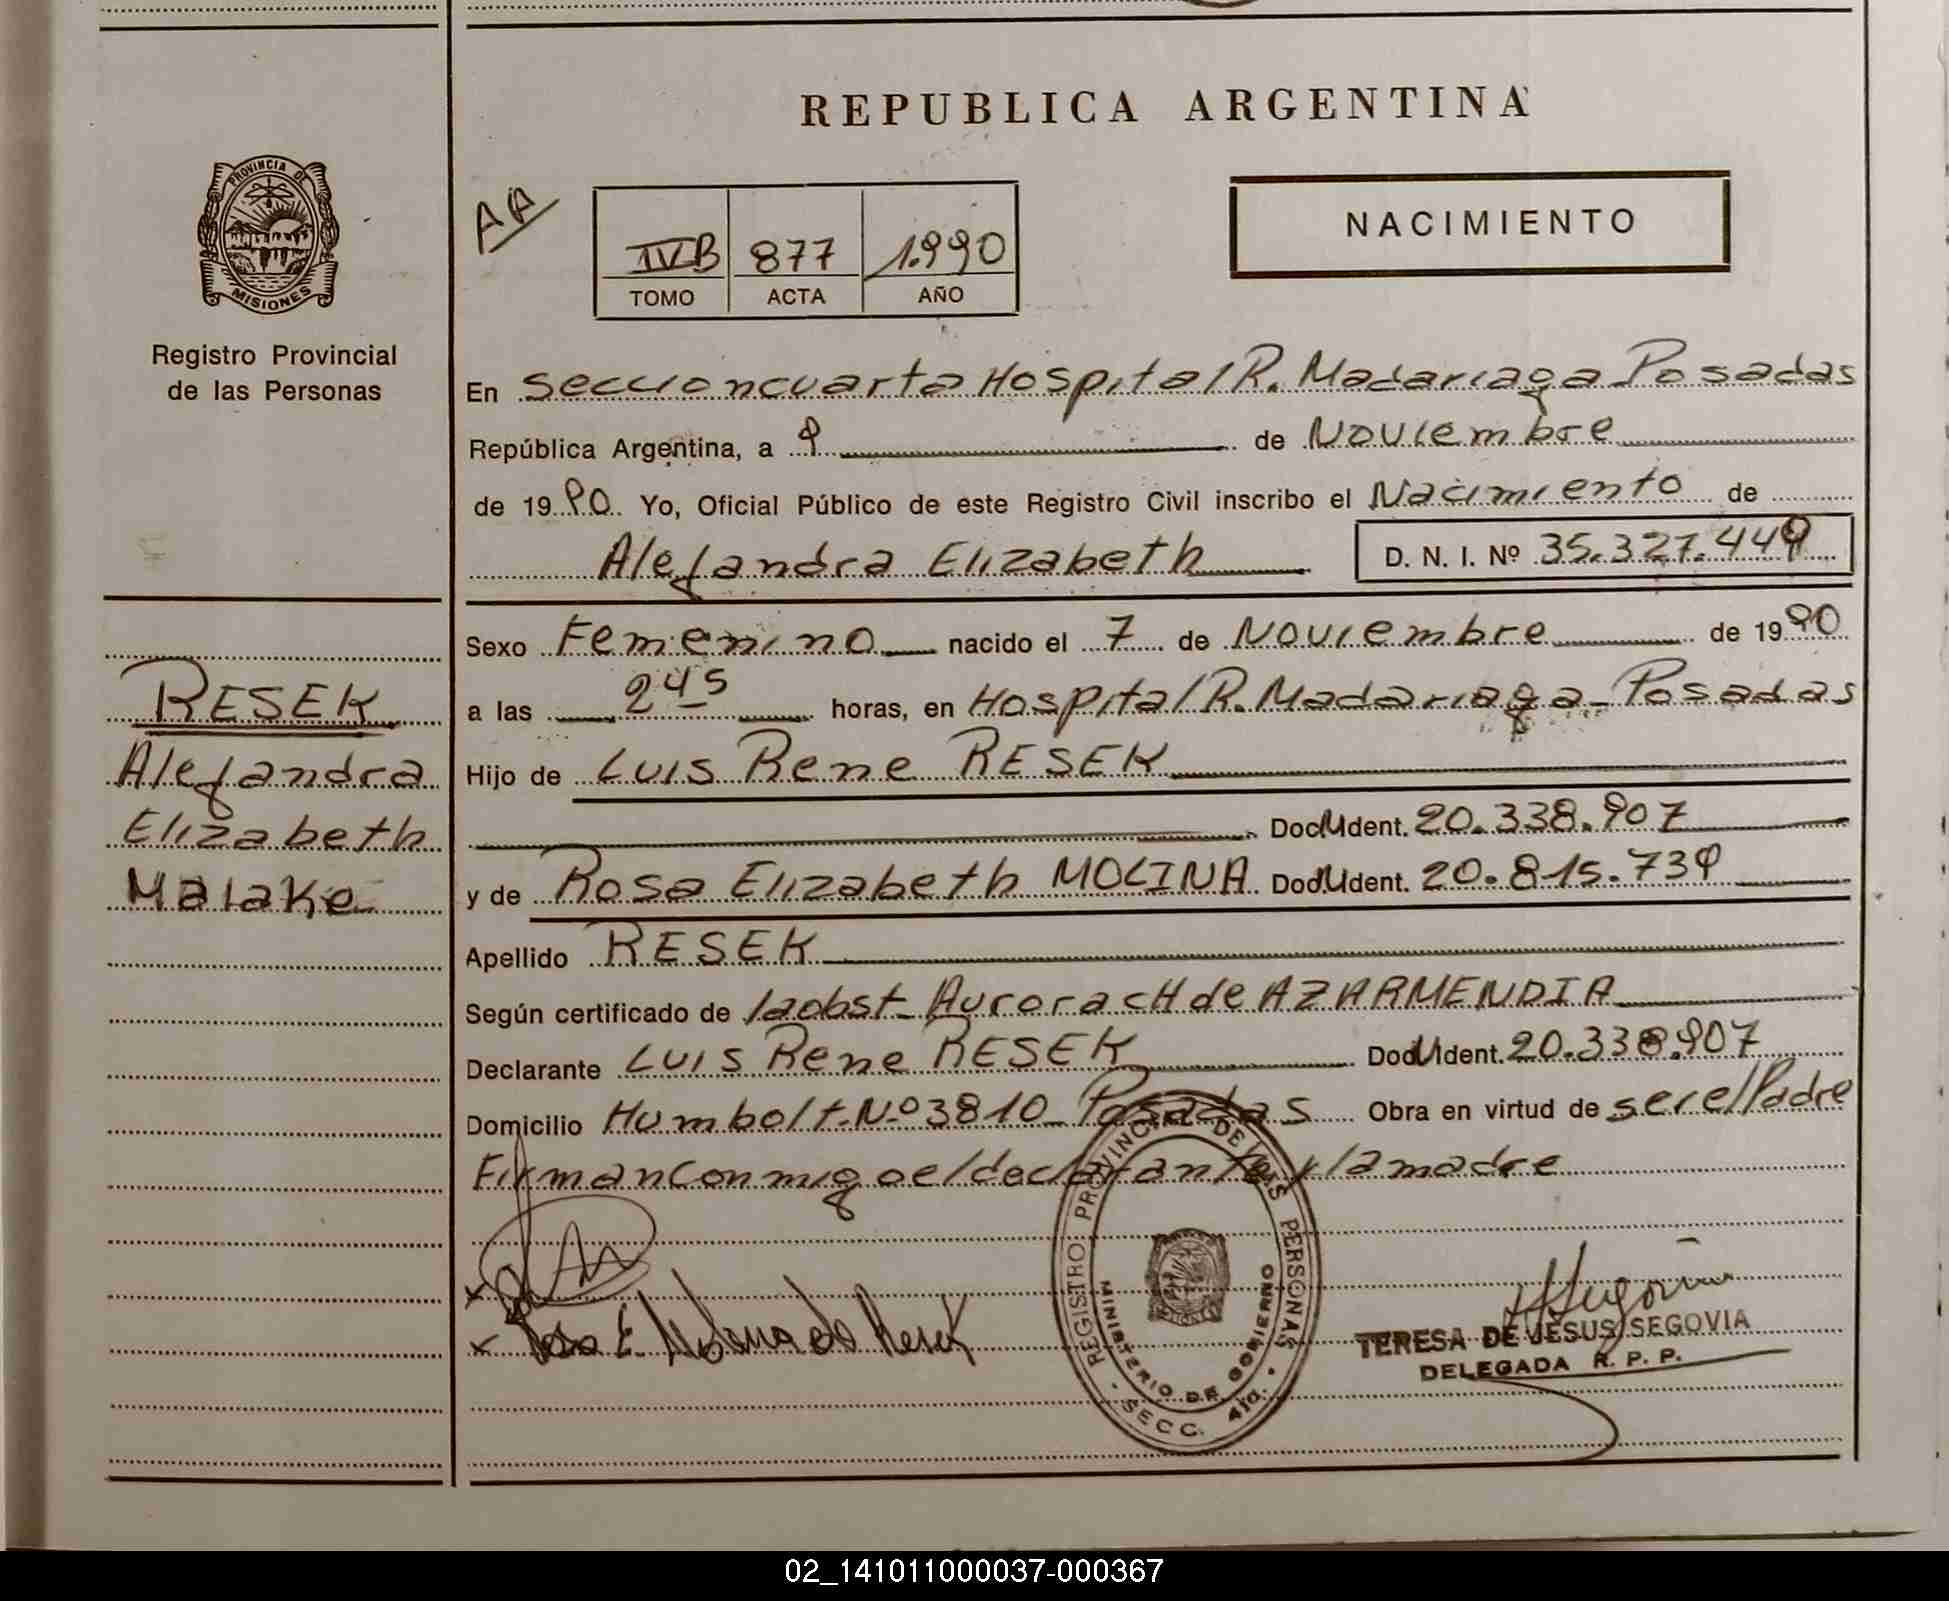 REPUBLICA ARGENTINA
PROVINCIA DE MISIONES
Registro Provincial
de las Personas
AA
IVB 877 1.990
TOMO ACTA AÑO
NACIMIENTO
En Seccion cuarta Hospital R. Madariaga Posadas
República Argentina, a 9 de Noviembre
de 1990 Yo, Oficial Público de este Registro Civil inscribo el Nacimiento de
Alejandra Elizabeth D. N. I. Nº 35.327.449
Sexo Femenino nacido el 7 de Noviembre de 1990
a las 245 horas, en Hospital R. Madariaga - Posadas
Hijo de Luis Rene RESEK
Doc. Ident. 20.338.907
y de Rosa Elizabeth MOLINA Doc. Ident. 20.815.739
Apellido RESEK
Según certificado de la obst - Aurora CH de AZARMENDIA
Declarante Luis Rene RESEK Doc. Ident. 20.338.907
Domicilio Humbolt - Nº 3810 - Posadas Obra en virtud de ser el Padre
Firman Conmigo el declarante y la madre
RESEK
Alejandra
Elizabeth
Malake
x
x Rosa E. Molina de Resek
REGISTRO PROVINCIAL DE LAS PERSONAS
MINISTERIO DE GOBIERNO
SECC. 4ta.
TERESA DE JESUS SEGOVIA
DELEGADA R. P. P.
02_141011000037-000367